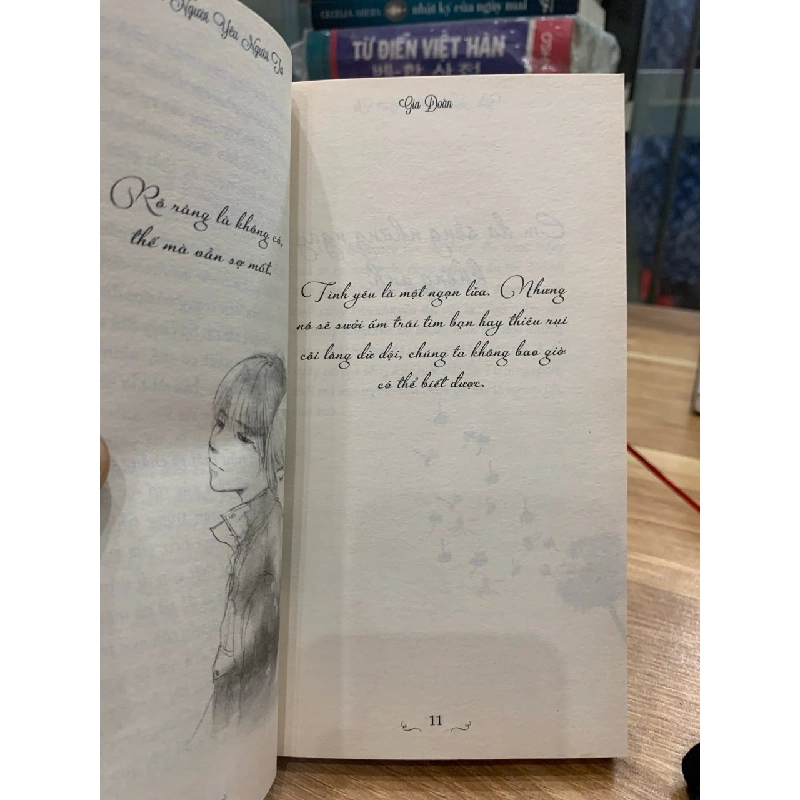 CECELIA AHERN nhật ký của ngày mai
TỪ ĐIỂN VIỆT HÀN
Người Yêu Người Ta
Rõ ràng là không có,
thế mà vẫn sợ mất.
Gia Đoàn
Tình yêu là một ngọn lửa. Nhưng
nó sẽ sưởi ấm trái tim bạn hay thiêu rụi
cõi lòng dữ dội, chúng ta không bao giờ
có thể biết được.
11